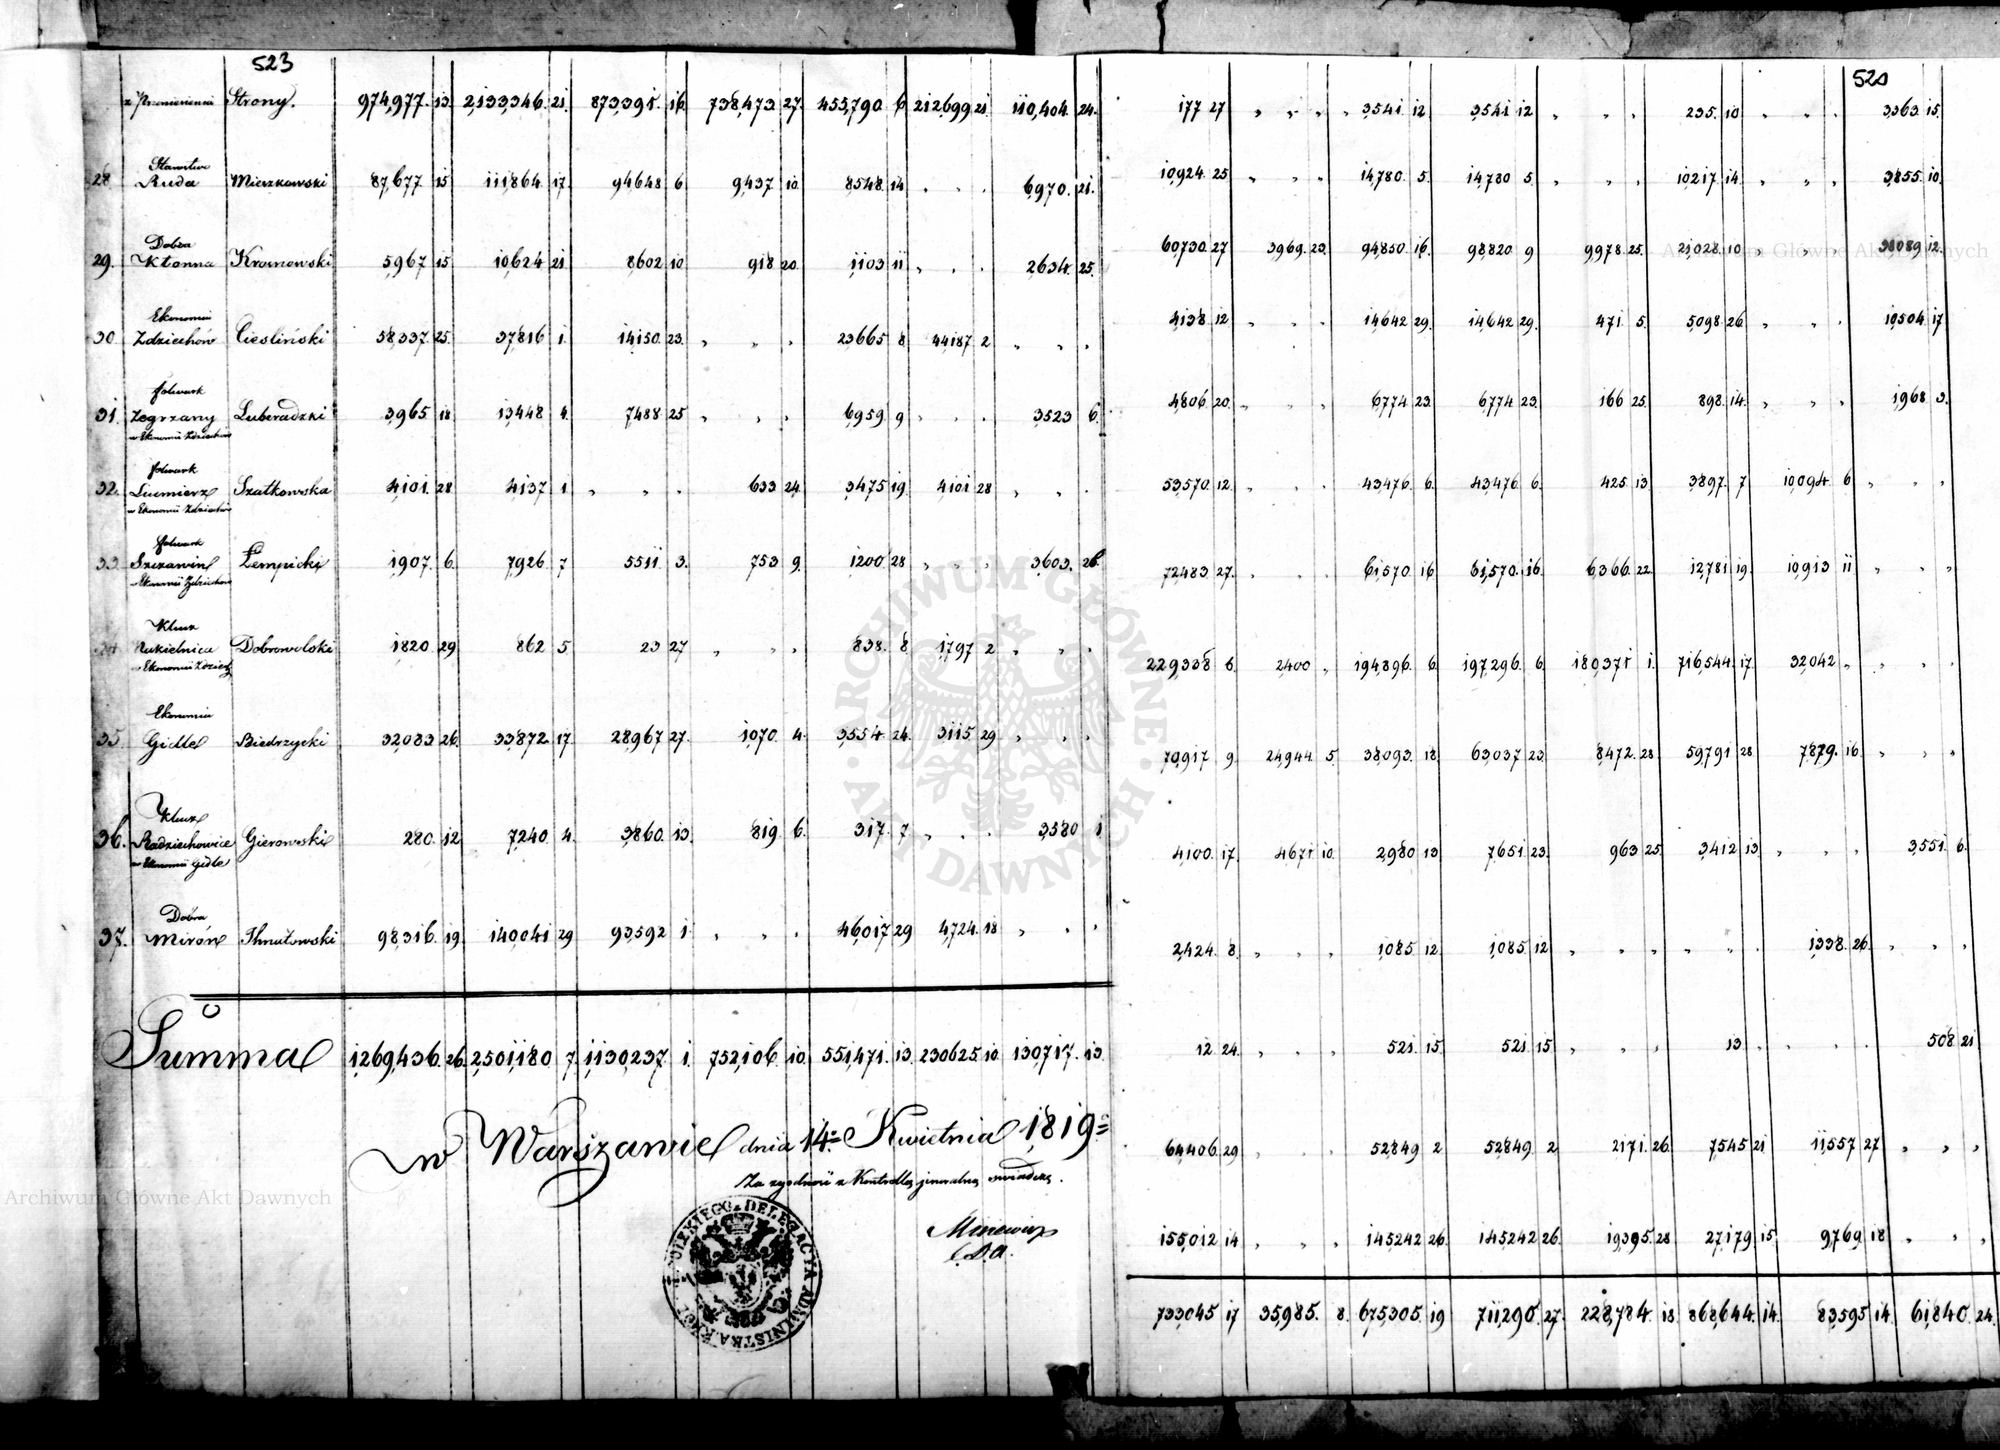 523
z Przeniesienia Strony. 974,977. 13 2,133,346. 21. 873,391. 16 738,473 27. 455,790. 6 212,699 21 110,404. 24.
28. Starostwo Ruda Mierzkowski 87,677. 15 111,864. 17. 94648 6 9,437 10. 8548. 14 " " " 6,970. 21.
29. Dobra Kłonna Kronowski 5,967 15 10,624 21 8602 10 918 20. 1103 11 " " " 2634. 25.
30. Ekonomia Zdziechów Ciesliński 58,337. 25. 37,816 1. 14,150. 23. " " " 23,665 8 44,187 2 " " "
31. folwark Zegrzany w Ekonomii Zdziechów Luberadzki 3,965 18 13,448 4. 7488 25 " " " 6,959 9 " " " 3,523 6.
32. folwark Lucmierz w Ekonomii Zdziechów Szatkowska 4,101. 28 4,137 1 " " " 633 24. 3,475 19. 4,101 28 " " "
33. folwark Szczawin w Ekonomii Zdziechów Łempicki 1,907. 6. 7,926. 7 5511 3. 753 9. 1200 28 " " " 3,603. 26.
34. Klucz Rukielnica w Ekonomii Zdziech. Dobrowolski 1820 29 862 5 23 27 " " " 838. 8 1,797 2 " " "
35. Ekonomia Gidle Biedrzycki 32,083 26. 33,872. 17 28,967 27. 1,070. 4. 3,554. 24. 3,115. 29 " " "
36. Klucz Radziechowice w Ekonomii Gidle Gierowski 280. 12 7,240. 4. 3,860. 13. 819. 6. 317. 7 " " " 3,580 1
37. Dobra Mirów 98,316. 19. 140,041 29 93,592 1. " " " 46,017 29 4,724. 18 " " "
Summa 1,269,436. 26. 2,501,180 7. 1,130,237. 1. 752,106. 10. 551,471. 13. 230625. 10 130,717. 13.
w Warszawie dnia 14. Kwietnia 1819
Za zgodność z Kontrollą jeneralną swiadczę.
520
177 27 " " " 3,541. 12 3,541 12 " " " 235. 10 " " " 3,363. 15.
10,924. 25 " " " 14,780. 5. 14,780 5. " " " 10,217 14. " " " 3,855. 10.
60,730. 27 3,969. 23. 94,850. 16. 98,820 9 9,978. 25. 21,028. 10 " " " 38,089 12.
4,138 12 " " " 14,642 29. 14,642 29. 471. 5. 5,098. 26 " " " 10,504. 17
4,806. 20. " " " 6,774. 23. 6,774 23. 166 25. 898. 14. " " " 1,968 3.
53,570. 12. " " " 43,476. 6. 43,476 6. 425. 13 3,897. 7 10,094. 6 " " "
72,483 27. " " " 61,570. 16 61,570. 16. 6,366. 22. 12,781 19. 10,913 11 " " "
229,338 6. 2,400 " 194,896. 6. 197,296. 6. 180,371 1. 716,544. 17. 32,042 " " " "
70,917 9. 24,944. 5. 38,093. 18. 63,037 23. 8,472. 28. 59,791 28 7,879. 16. " " "
4,100. 17. 4,671 10. 2,980 13 7,651 23. 963 25. 3,412 13. " " " 3,551. 6.
2,424. 8. " " " 1,085 12. 1,085 12 " " " " " " 1,338. 26. " " "
12 24. " " " 521. 15. 521 15 " " " 13 " " " " 508. 21
64,406. 29 " " " 52,849 2 52,849 2 2,171. 26. 7,545 21 11,557 27 " " "
155,012 14 " " " 145,242 26. 145,242 26. 19,395. 28 27,179 15. 9,769 18 " " "
733,045 17 35,985. 8. 675,305. 19 711,290. 27. 228,784. 18 868,644. 14. 83,595 14. 61,840. 24.
Archiwum Główne Akt Dawnych
Archiwum Główne Akt Dawnych
ARCHIWUM GŁÓWNE · AKT DAWNYCH ·